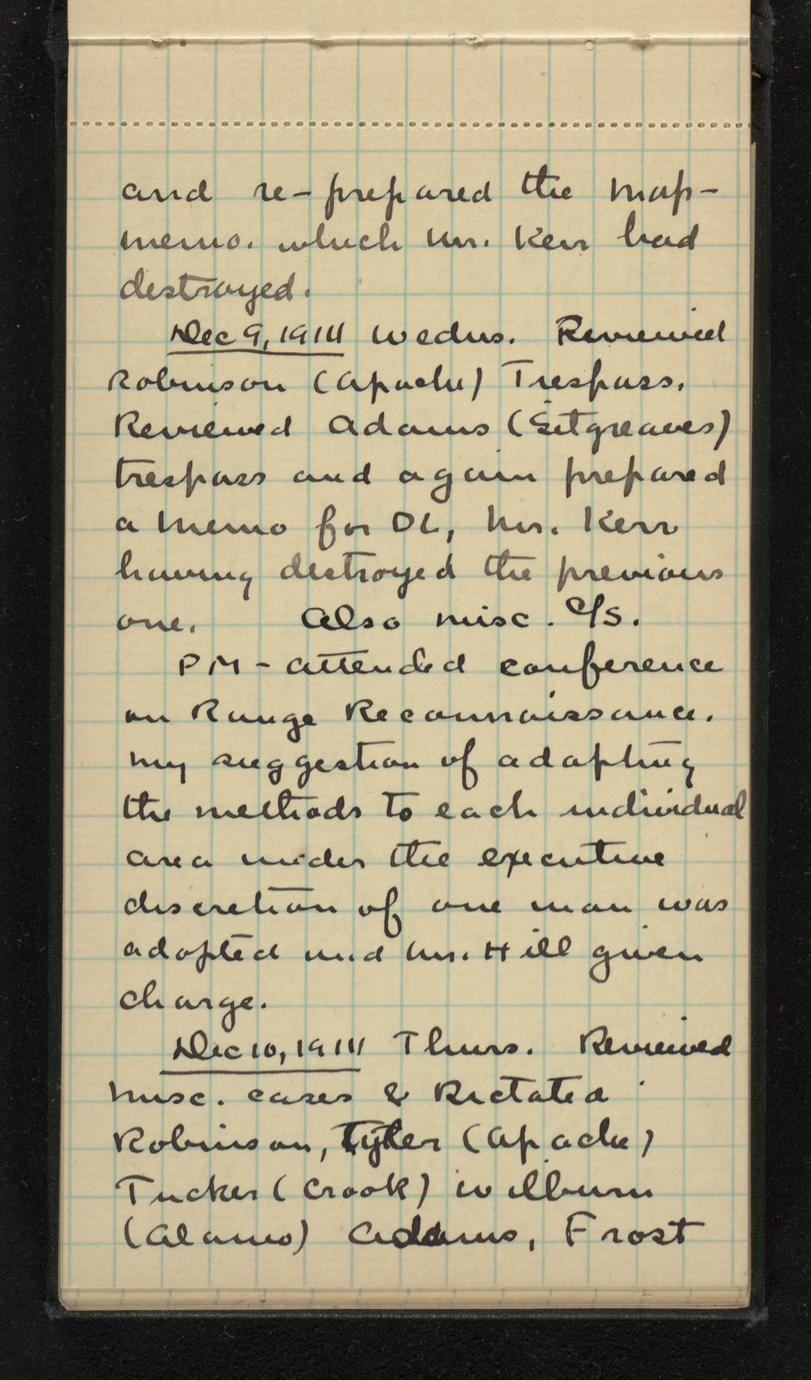 and re-prepared the map-
memo. which Mr. Kerr had
destroyed.
Dec 9, 1914 Wednes. Reviewed
Robinson (Apache) Trespass.
Reviewed Adams (Sitgreaves)
trespass and again prepared
a memo for OL, Mr. Kerr
having destroyed the previous
one. Also misc. C/S.
PM - attended conference
on Range Reconnaissance.
My suggestion of adapting
the methods to each individual
area under the executive
discretion of one man was
adopted and Mr. Hill given
charge.
Dec 10, 1914 Thurs. Reviewed
misc. cases & Dictated
Robinson, Tyler (Apache)
Tucker (Crook) Wilburn
(Alamo) Adams, Frost